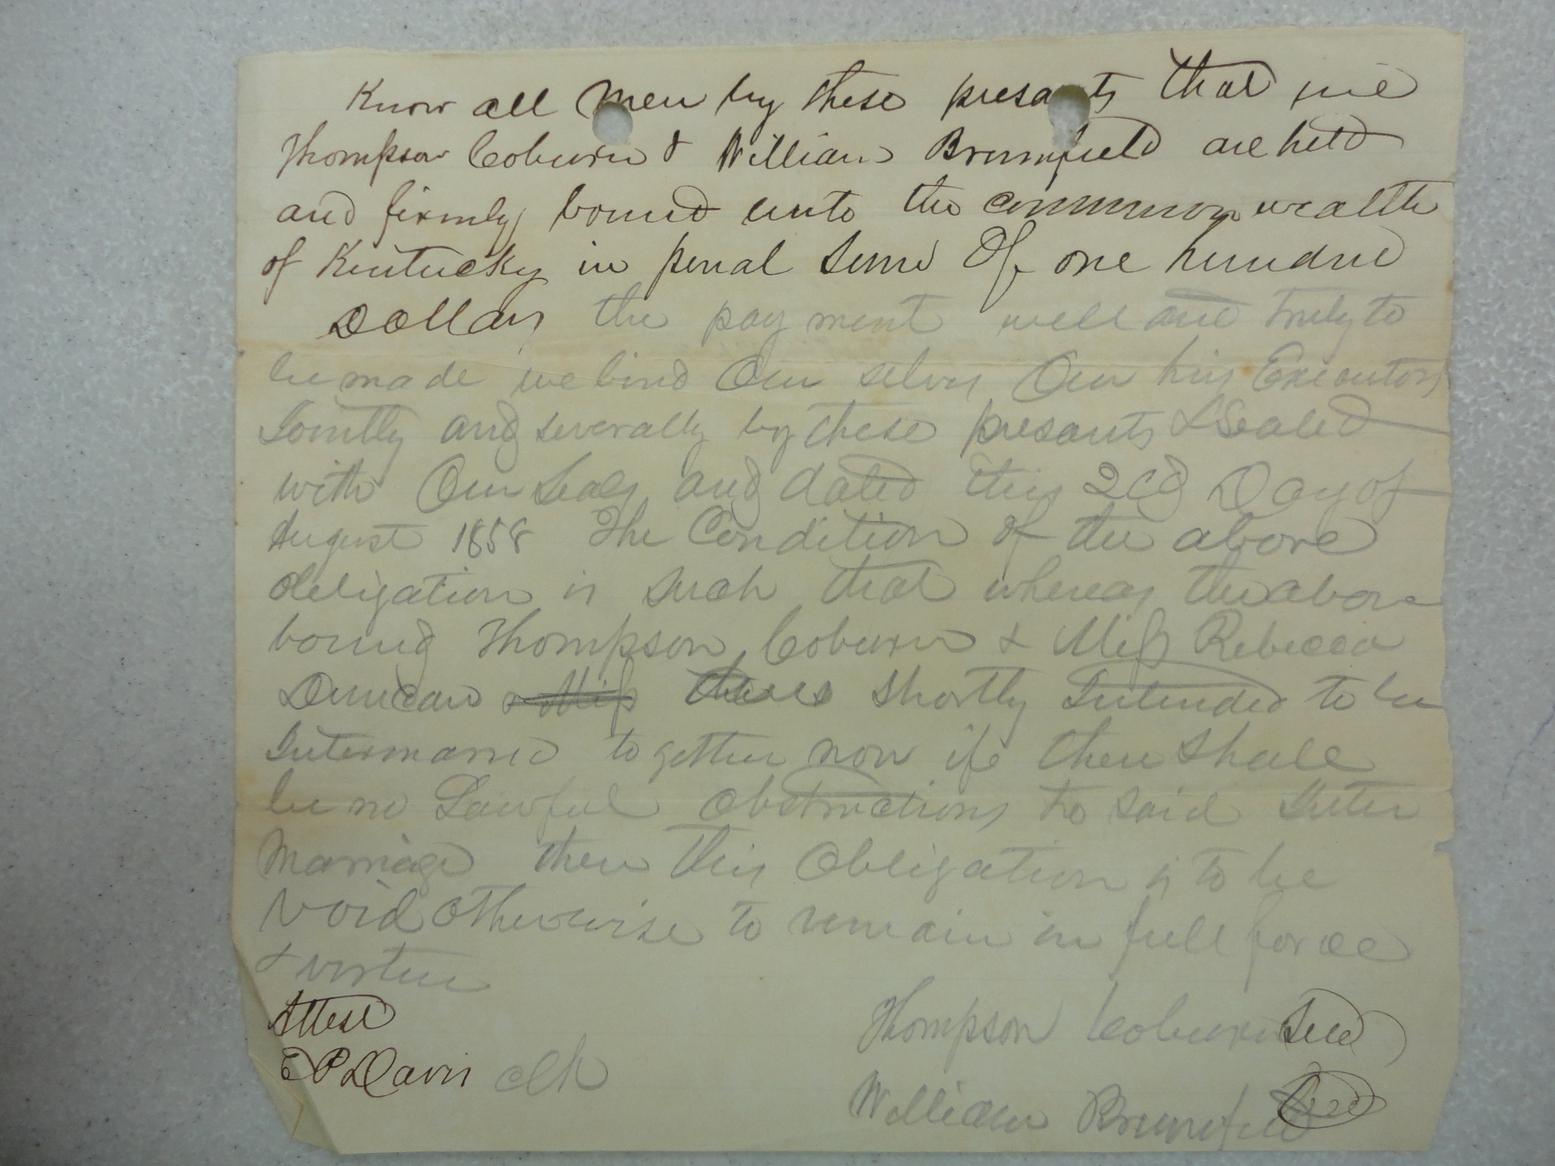 Know all men by these presants that we
Thompson Coburn & William Brumfield are held
and firmly bound unto the commonwealth
of Kentucky in penal sum Of one hundred
Dollars the payment well and truly to
be made we bind Our selves Our hirs Executors
Jointly and severally by these presants & Sealed
with Our Seals and dated this 2cd Day of
August 1858 The Condition of the above
obligation is such that whereas the above
bound Thompson Coburn & Miss Rebecca
Duncan & Miss there is shortly Intended to be
Intermarried together now if there shall
be no Lawful Obstructions to said Inter
Marriage then this Obligation is to be
void otherwise to remain in full force
& virtue
Attest
E P Davis clk
Thompson Coburn Seal
William Brumfield Seal